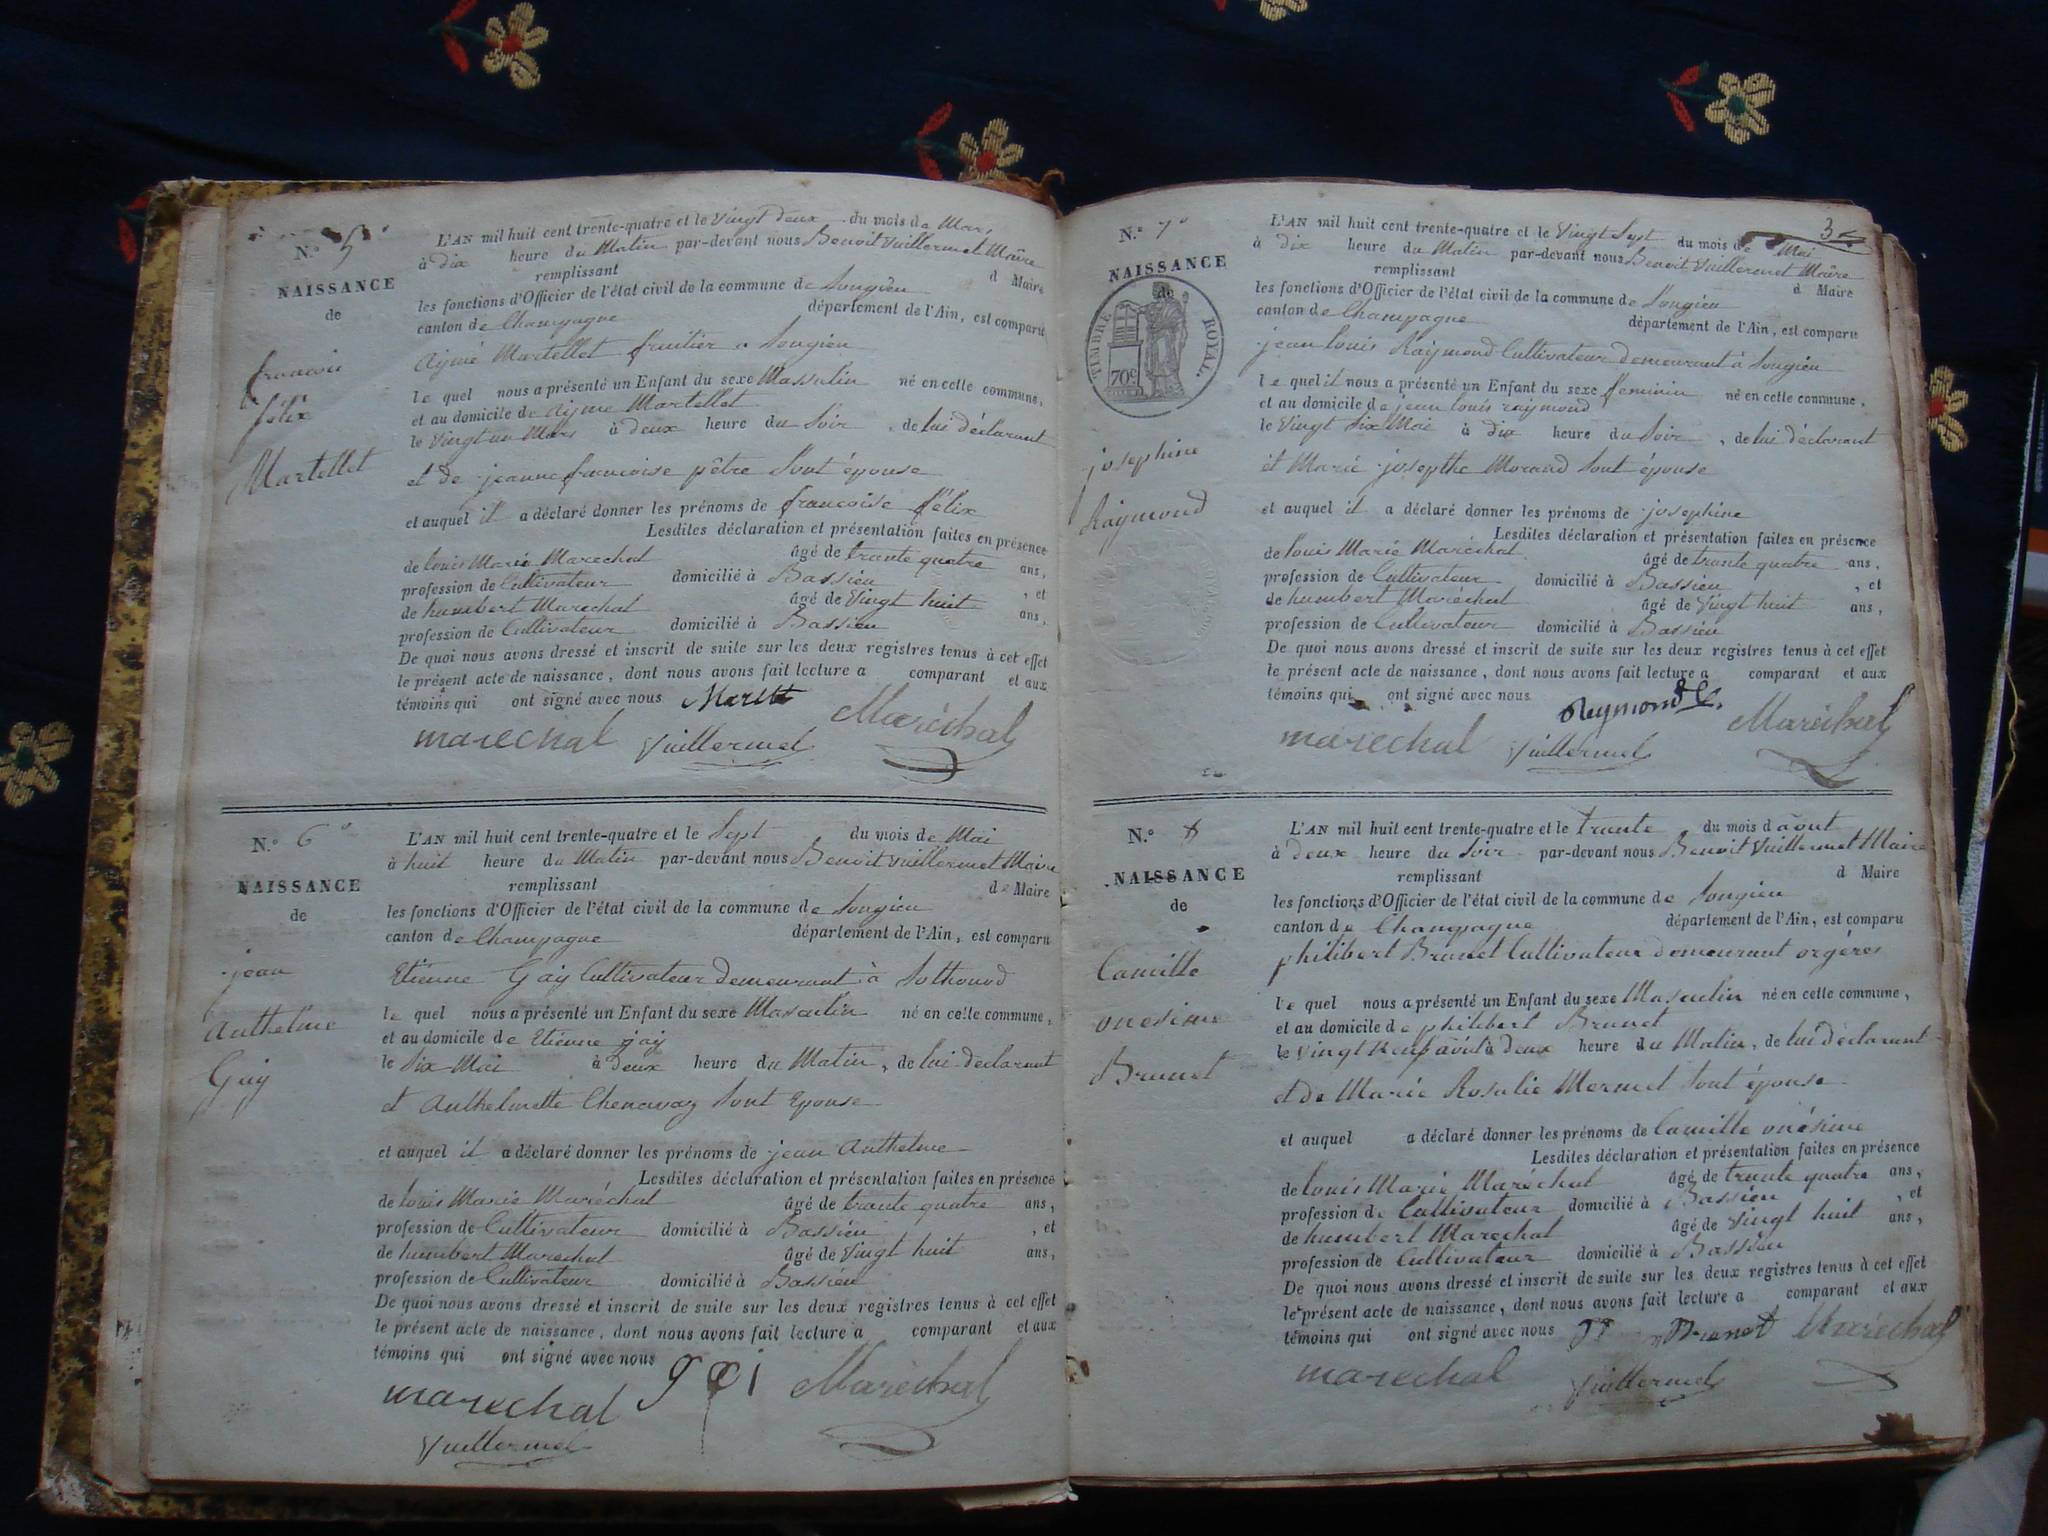 N.° 5°
NAISSANCE
de
francois
félix
Martellet
L'AN mil huit cent trente-quatre et le Vingt deux du mois de Mars
à dix heure du Matin par-devant nous Benoit Vuillermet Maire
remplissant d Maire
les fonctions d'Officier de l'état civil de la commune de Songieu
canton de Champagne département de l'Ain, est comparu
Aymé Martellet fruitier a Songieu
le quel nous a présenté un Enfant du sexe Massulin né en cette commune,
et au domicile de Ayme Martellet
le Vingt un Mars à deux heure du Soir, de lui déclarant
et de jeanne francoise pêtre Sont épouse
et auquel il a déclaré donner les prénoms de francoise félix
Lesdites déclaration et présentation faites en présence
de louis Marie Marechal âgé de trante quatre ans,
profession de Cultivateur domicilié à Bassieu, et
de humbert Marechal âgé de Vingt huit ans,
profession de Cultivateur domicilié à Bassieu
De quoi nous avons dressé et inscrit de suite sur les deux registres tenus à cet effet
le présent acte de naissance, dont nous avons fait lecture a comparant et aux
témoins qui ont signé avec nous Maréchal
marechal Vuillermet
N.° 6°
NAISSANCE
de
jean
Anthelme
Gay
L'AN mil huit cent trente-quatre et le Sept du mois de Mai
à huit heure du Matin par-devant nous Benoit Vuillermet Maire
remplissant de Maire
les fonctions d'Officier de l'état civil de la commune de Songieu
canton de Champagne département de l'Ain, est comparu
Etienne Gay Cultivateur Demeurant à Sothonod
le quel nous a présenté un Enfant du sexe Masculin né en cette commune,
et au domicile de Etienne gay
le Six Mai à deux heure du Matin, de lui déclarant
et Anthelmette Chenavaz Sont Epouse
et auquel il a déclaré donner les prénoms de jean Anthelme
Lesdites déclaration et présentation faites en présence
de louis Marie Maréchal âgé de trante quatre ans,
profession de Cultivateur domicilié à Bassieu, et
de humbert Marechal âgé de Vingt huit ans,
profession de Cultivateur domicilié à Bassieu
De quoi nous avons dressé et inscrit de suite sur les deux registres tenus à cet effet
le présent acte de naissance, dont nous avons fait lecture a comparant et aux
témoins qui ont signé avec nous
marechal Maréchal
Vuillermet
3
N.° 7°
NAISSANCE
de
TIMBRE ROYAL.
70c
josephine
Raymond
L'AN mil huit cent trente-quatre et le Vingt Sept du mois de Mai
à dix heure du Matin par-devant nous Benoit Vuillermet Maire
remplissant d Maire
les fonctions d'Officier de l'état civil de la commune de Songieu
canton de Champagne département de l'Ain, est comparu
jean louis Raymond Cultivateur demeurant à Songieu
le quel il nous a présenté un Enfant du sexe feminin né en cette commune,
et au domicile de jean louis raymond
le Vingt Six Mai à dix heure du Soir, de lui déclarant
et Marie josepthe Morand Sont épouse
et auquel il a déclaré donner les prénoms de josephine
Lesdites déclaration et présentation faites en présence
de louis Marie Maréchal âgé de trante quatre ans,
profession de Cultivateur domicilié à Bassieu, et
de humbert Maréchal âgé de Vingt huit ans,
profession de Cultivateur domicilié à Bassieu
De quoi nous avons dressé et inscrit de suite sur les deux registres tenus à cet effet
le présent acte de naissance, dont nous avons fait lecture a comparant et aux
témoins qui ont signé avec nous Reymond Maréchal
marechal Vuillermet
N.° 8
NAISSANCE
de
Camille
onesime
Brunet
L'AN mil huit cent trente-quatre et le trante du mois d'août
à deux heure du Soir par-devant nous Benoit Vuillermet Maire
remplissant d Maire
les fonctions d'Officier de l'état civil de la commune de Songieu
canton de Champagne département de l'Ain, est comparu
philibert Brunet Cultivateur Demeurant orgères
le quel nous a présenté un Enfant du sexe Masculin né en cette commune,
et au domicile de philibert Brunet
le Vingt Neuf août à deux heure du Matin, de lui déclarant
et de Marie Rosalie Mermet Sont épouse
et auquel a déclaré donner les prénoms de Camille onésime
Lesdites déclaration et présentation faites en présence
de louis Marie Maréchal âgé de trante quatre ans,
profession de Cultivateur domicilié à Bassieu, et
de humbert Marechal âgé de Vingt huit ans,
profession de Cultivateur domicilié à Bassieu
De quoi nous avons dressé et inscrit de suite sur les deux registres tenus à cet effet
le présent acte de naissance, dont nous avons fait lecture a comparant et aux
témoins qui ont signé avec nous Brunet Maréchal
marechal Vuillermet